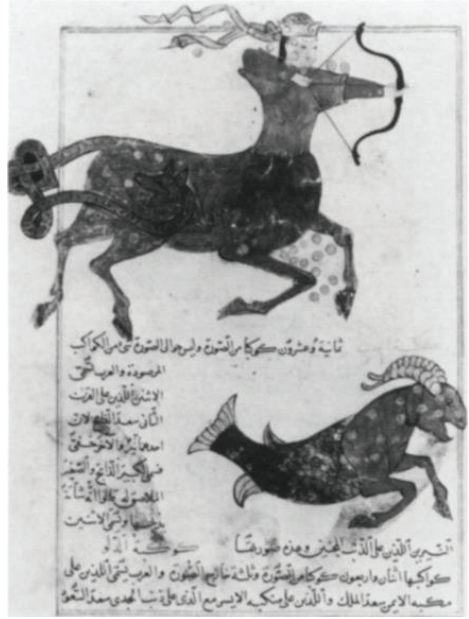 ثمانية وعشرون كوكبا من الصورة وليس حوالى الصورة شى من الكواكب
المرصودة والعرب تسمى
الاثنين اللذين على القرن
الثانى سعد الذابح لان
احدهما نير والاخر خفى
الكبير الذابح والصغير
الملاصق له قالوا انه شاته
وتسمى الاثنين
النيرين اللذين على الذنب المحبين وهذه صورتها
كوكبة الدلو
كواكبها اثنان واربعون كوكبا من الصورة وثلثة خارج الصورة والعرب تسمى اللذين على
منكبه الايمن سعد الملك واللذين على منكبه الايسر مع الذى على ذنب الجدى سعد السعود